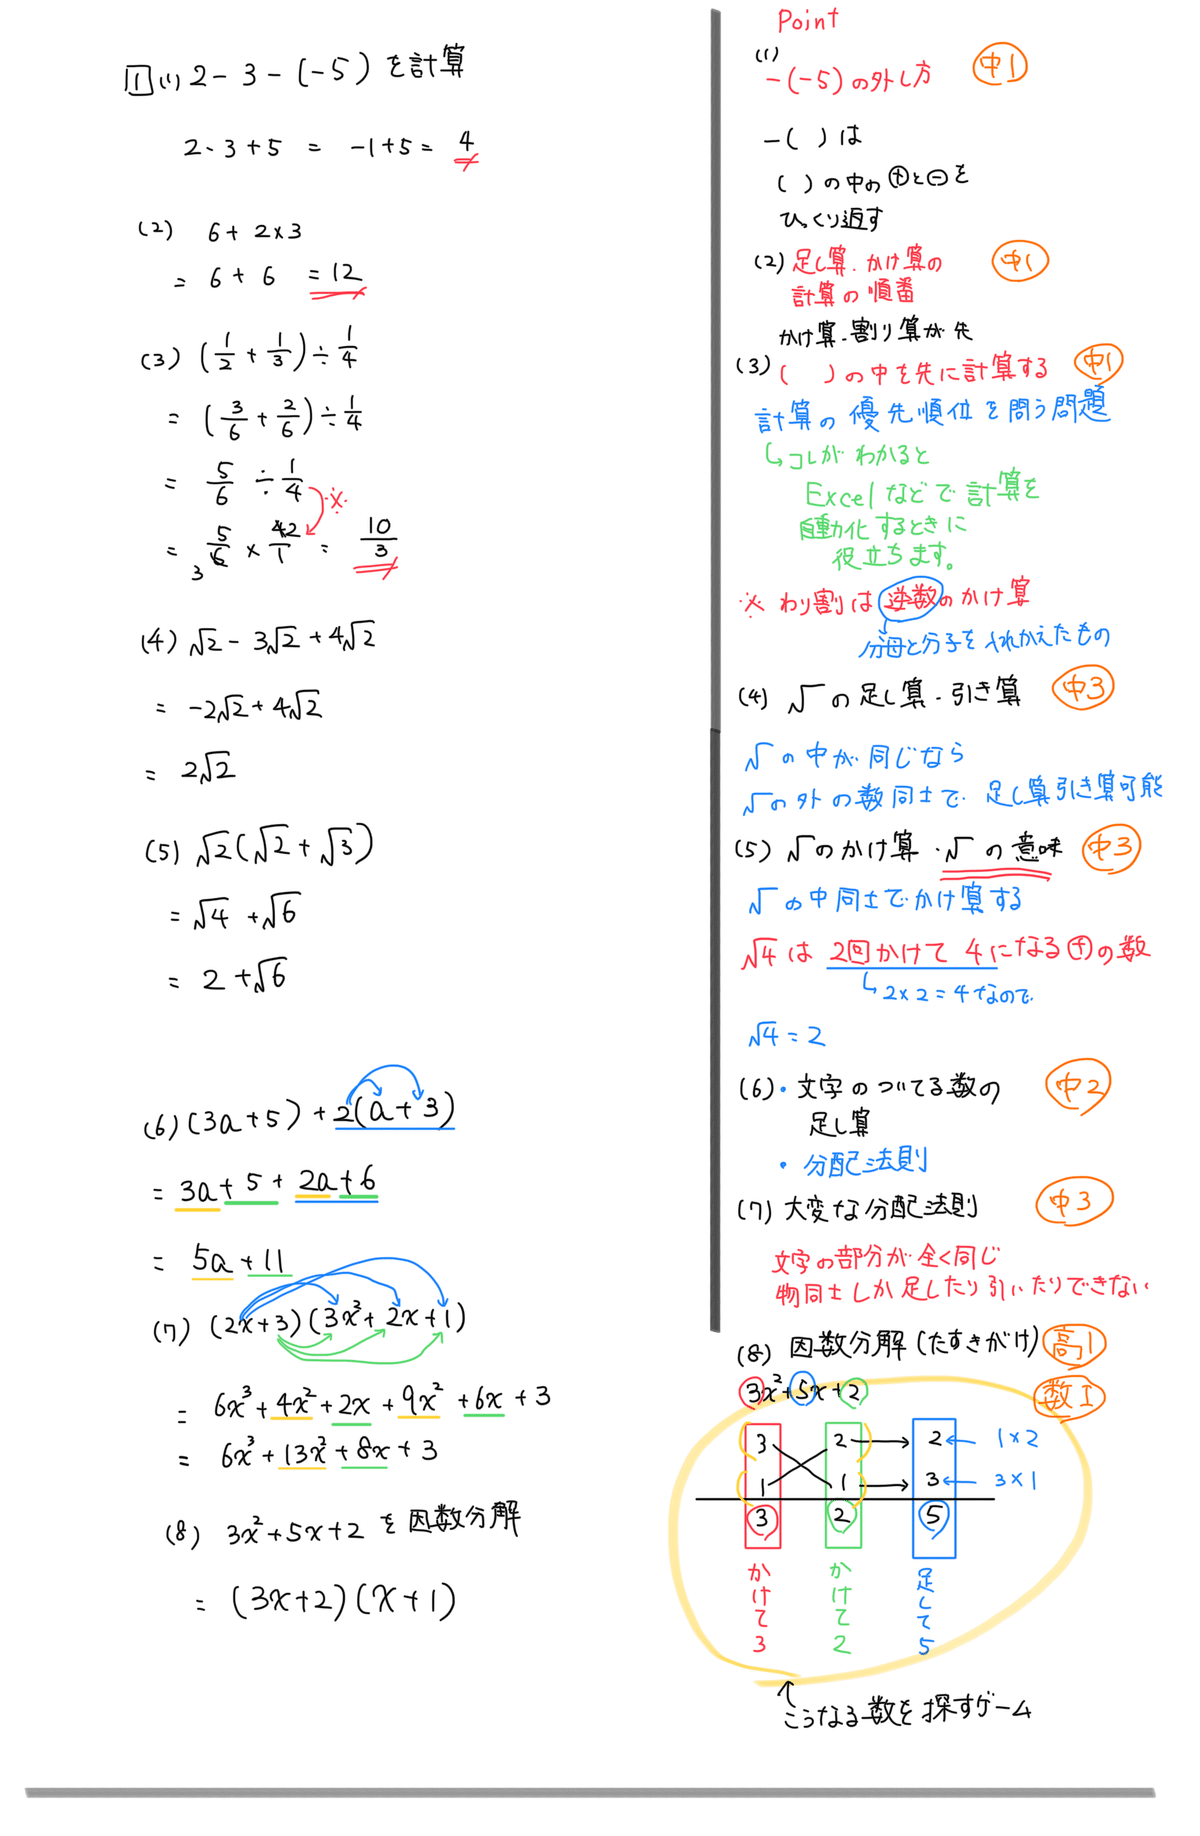 1 (1) 2 - 3 - (-5) を計算
2 - 3 + 5 = -1 + 5 = 4
(2) 6 + 2 × 3
= 6 + 6 = 12
(3) (1/2 + 1/3) ÷ 1/4
= (3/6 + 2/6) ÷ 1/4
= 5/6 ÷ 1/4 ※
= 5/6 × 4/1 = 10/3
3 2
(4) √2 - 3√2 + 4√2
= -2√2 + 4√2
= 2√2
(5) √2(√2 + √3)
= √4 + √6
= 2 + √6
(6) (3a + 5) + 2(a + 3)
= 3a + 5 + 2a + 6
= 5a + 11
(7) (2x + 3)(3x² + 2x + 1)
= 6x³ + 4x² + 2x + 9x² + 6x + 3
= 6x³ + 13x² + 8x + 3
(8) 3x² + 5x + 2 を因数分解
= (3x + 2)(x + 1)
Point
(1)
-(-5)の外し方 中1
-( )は
( )の中の⊕と⊖を
ひっくり返す
(2) 足し算・かけ算の 中1
計算の順番
かけ算・割り算が先
(3) ( )の中を先に計算する 中1
計算の優先順位を問う問題
↳コレがわかると
Excelなどで計算を
自動化するときに
役立ちます。
※わり割は逆数のかけ算
分母と分子を入れかえたもの
(4) √の足し算・引き算 中3
√の中が同じなら
√の外の数同士で足し算引き算可能
(5) √のかけ算・√の意味 中3
√の中同士でかけ算する
√4は2回かけて4になる⊕の数
↳2×2=4なので
√4=2
(6)・文字のついてる数の 中2
足し算
・分配法則
(7) 大変な分配法則 中3
文字の部分が全く同じ
物同士しか足したり引いたりできない
(8) 因数分解(たすきがけ) 高1
3x²+5x+2 数I
3 2 → 2 ← 1×2
1 1 → 3 ← 3×1
3 2 5
かけて3
かけて2
足して5
↑
こうなる数を探すゲーム